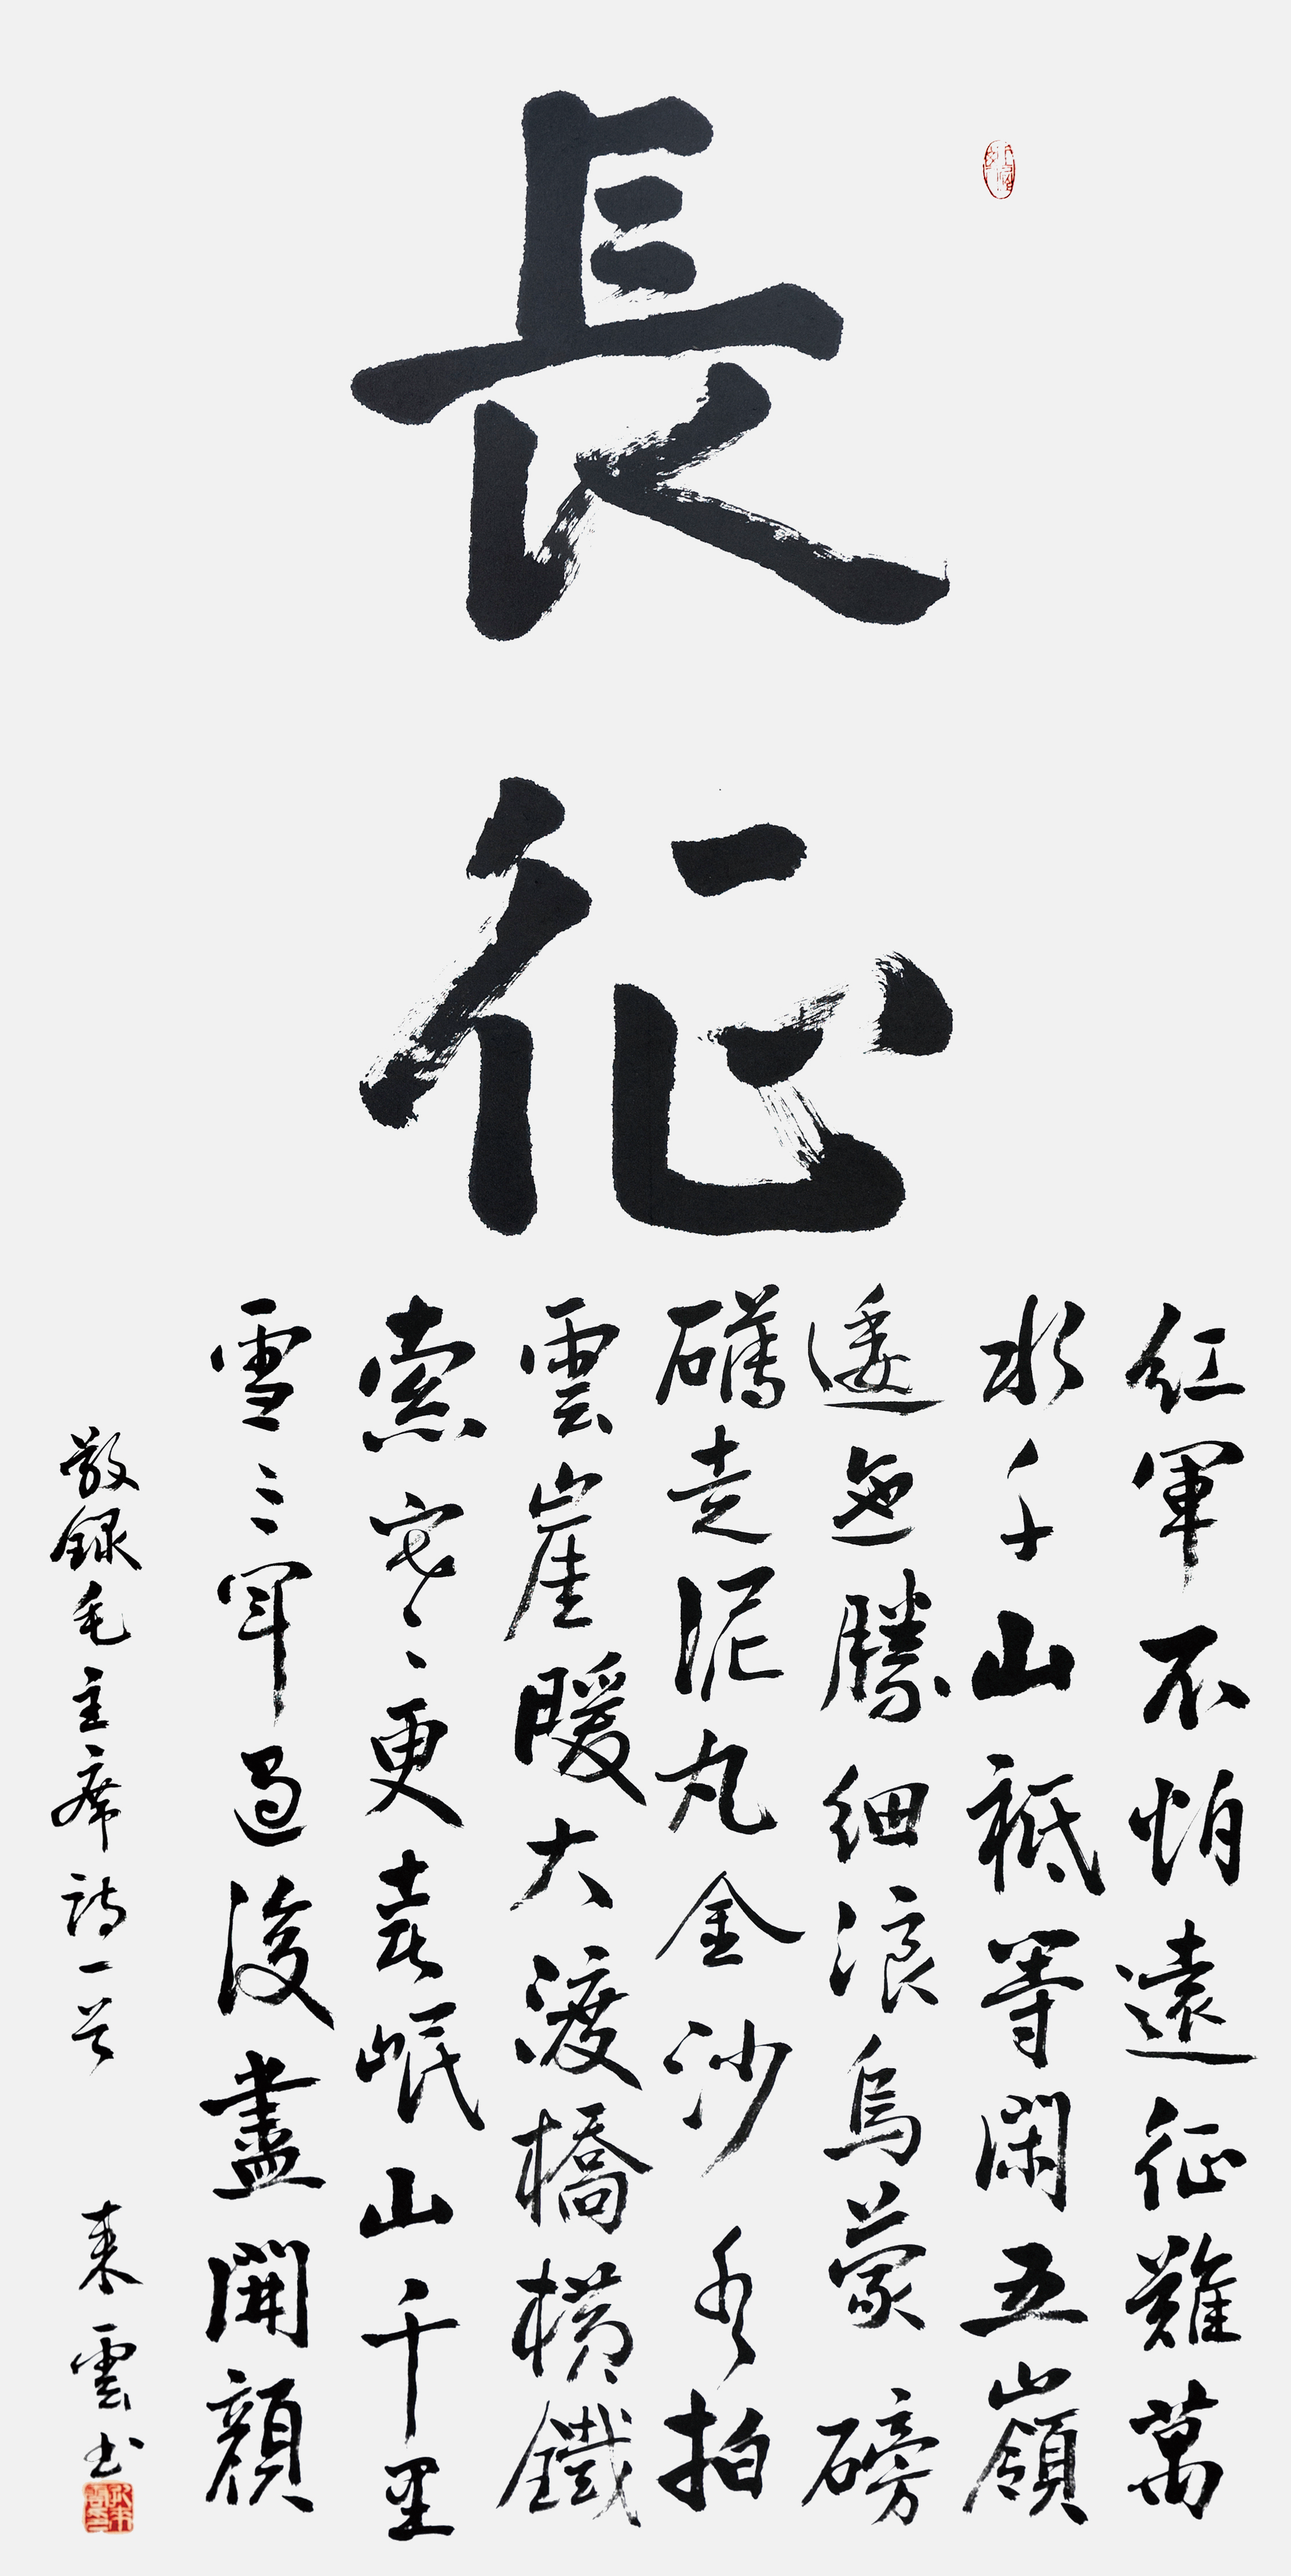 長征
紅軍不怕遠征難萬
水千山祗等閑五嶺
逶迤騰細浪烏蒙磅
礴走泥丸金沙水拍
雲崖暖大渡橋橫鐵
索寒〻更喜岷山千里
雪三軍過後盡開顏
敬録毛主席詩一首 來雲书